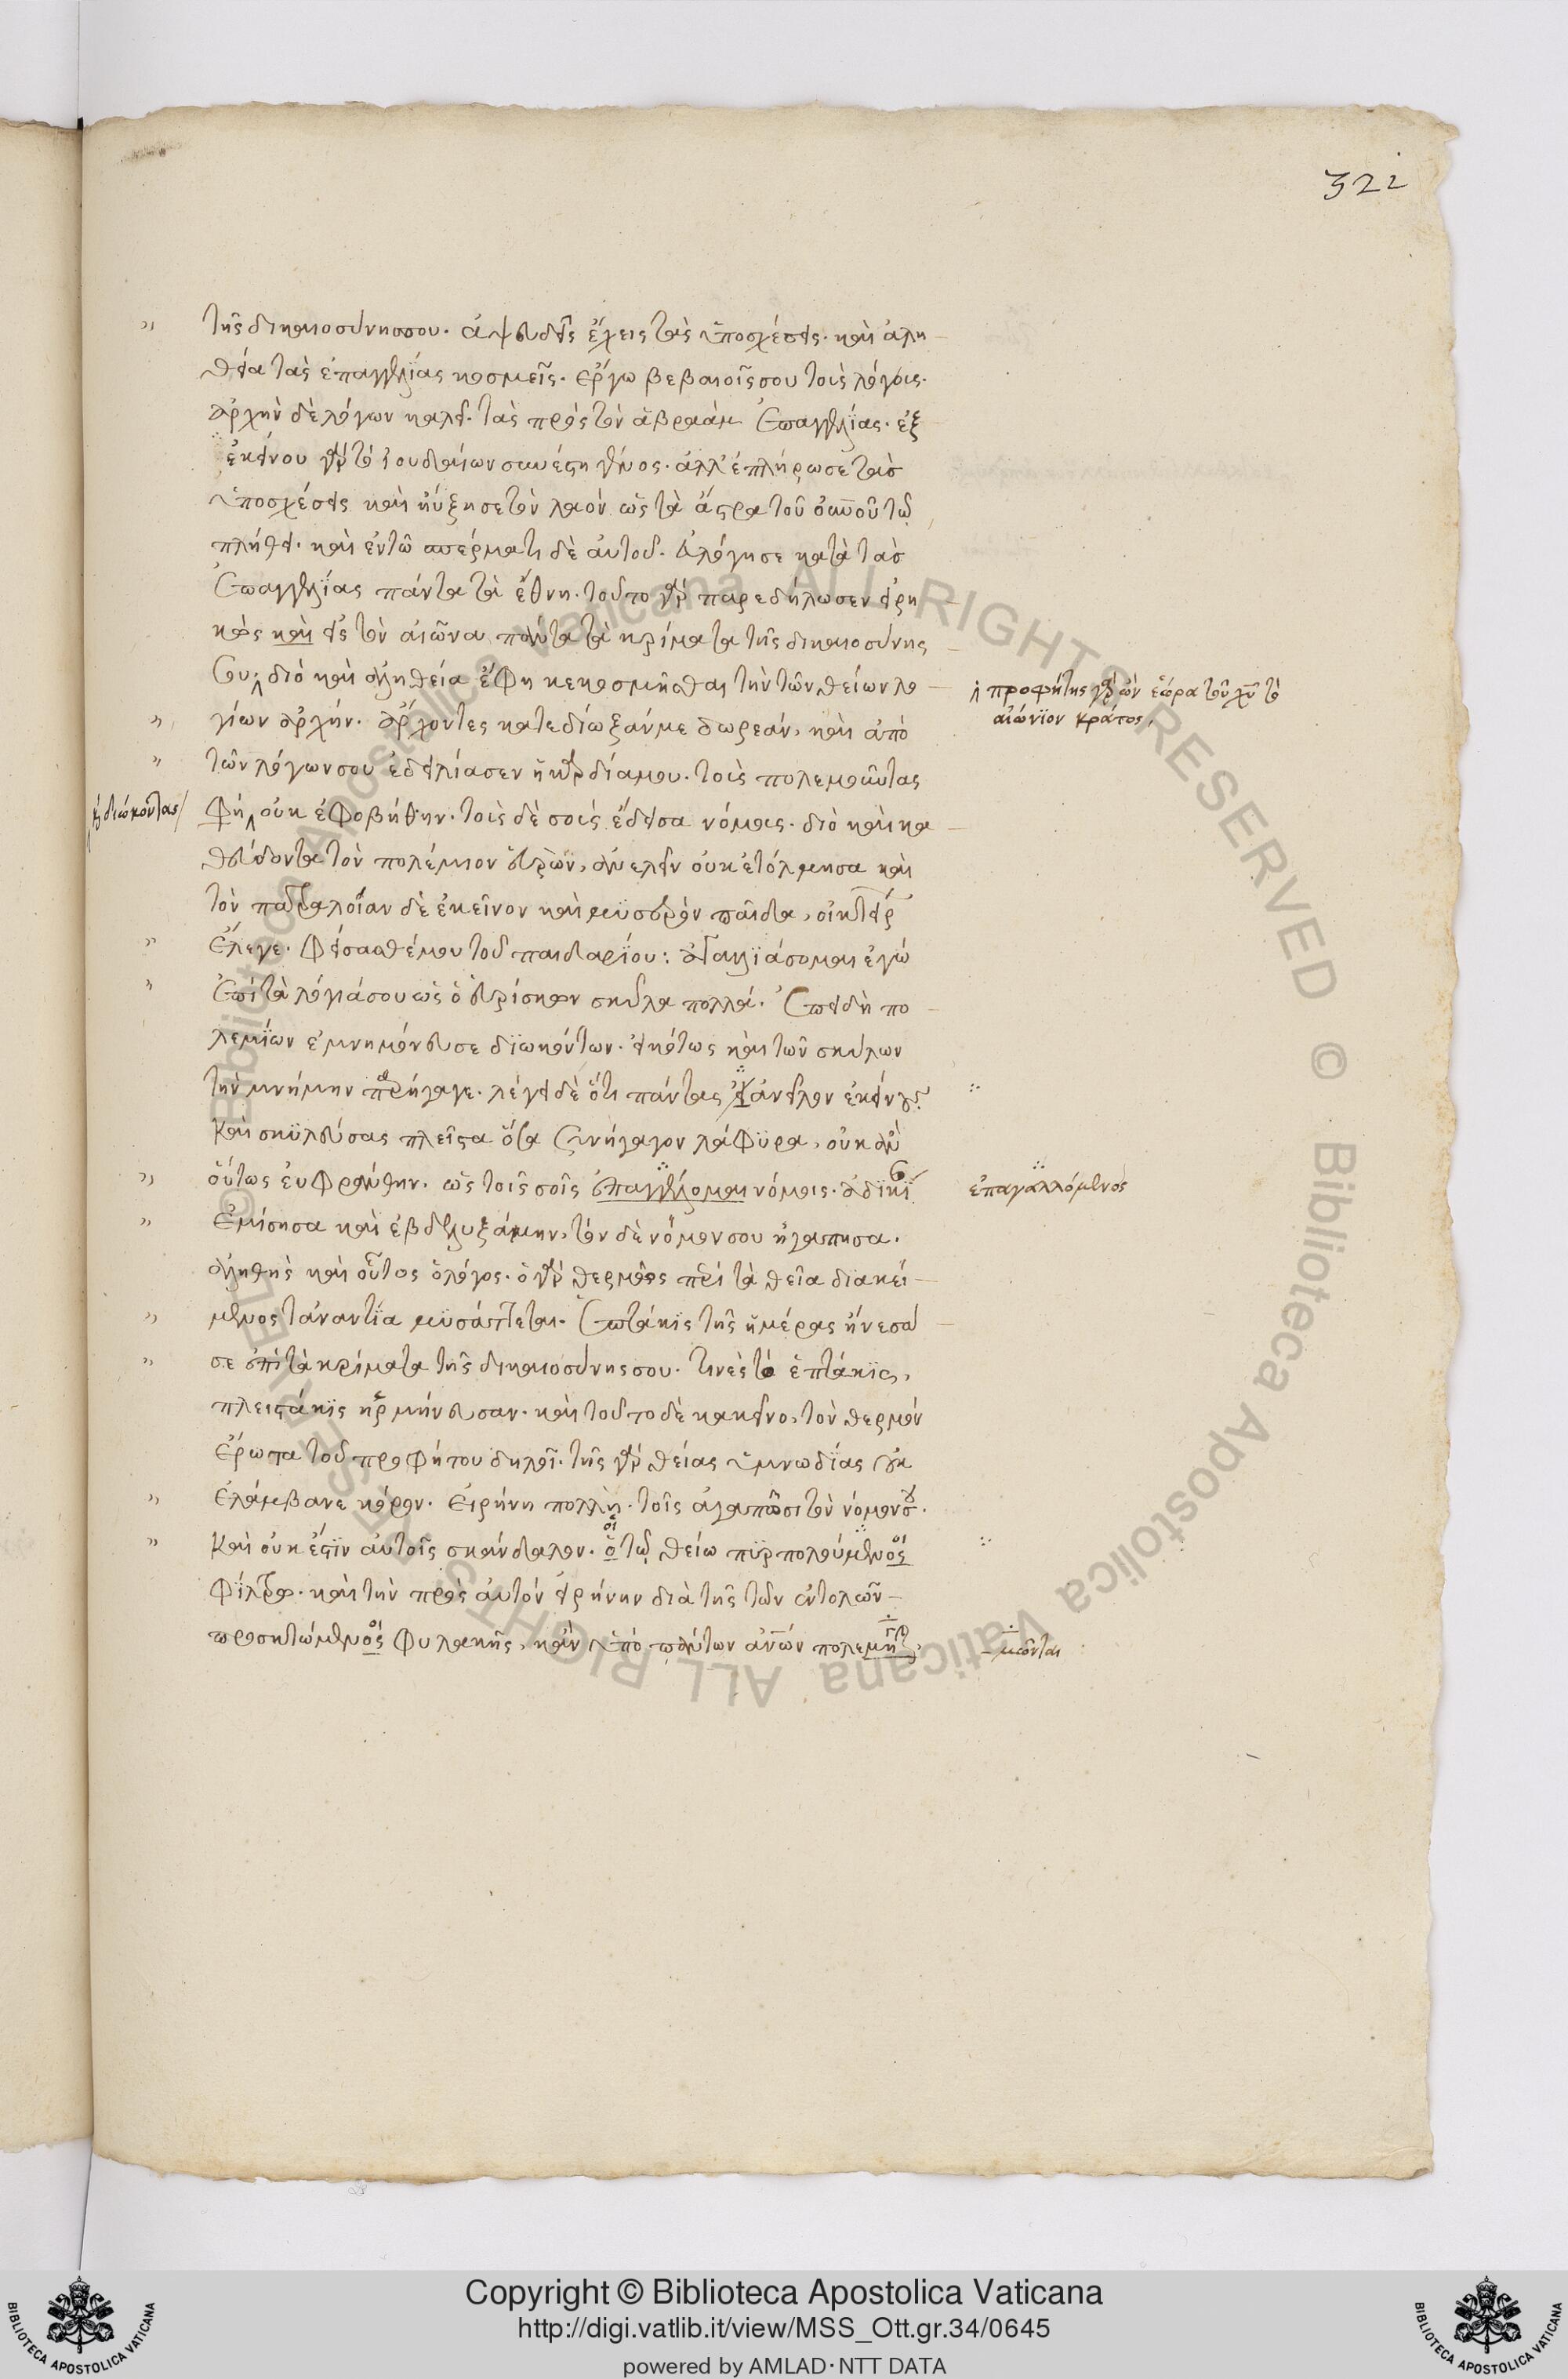 321
τῆς δικαιοσύνης σου. ἀψευδεῖς ἔχεις τὰς ὑποσχέσεις. καὶ ἀλη
θείᾳ τὰς ἐπαγγελίας κοσμεῖς. ἔργω βεβαιοῖς σου τοὺς λόγους.
ἀρχὴν δὲ λόγων καλεῖ. τὰς πρὸς τὸν ἀβραὰμ ἐπαγγελίας. ἐξ
ἐκείνου γὰρ τὸ ἰουδαίων συνέστη γένος. ἀλλ' ἐπλήρωσε τὰς
ὑποσχέσεις καὶ ηὔξησε τὸν λαὸν ὡς τὰ ἄστρα τοῦ οὐνοῦ τῶ
πλήθει. καὶ ἐν τῶ σπέρματι δὲ αὐτοῦ. εὐλόγησε κατὰ τὰς
ἐπαγγελίας πάντα τὰ ἔθνη. τοῦτο γὰρ παρεδήλωσεν εἰρη
κὼς καὶ εἰς τὸν αἰῶνα πάντα τὰ κρίματα τῆς δικαιοσύνης
σου, διὸ καὶ ἀληθεία ἔφη κεκοσμῆσθαι τὴν τῶν θείων λο
προφήτης γὰρ ὢν ἑώρα τοῦ χυ τὸ
αἰώνιον κράτος,
γίων ἀρχήν. ἄρχοντες κατεδίωξάν με δωρεάν, καὶ ἀπὸ
τῶν λόγων σου ἐδειλίασεν ἡ καρδία μου. τοὺς πολεμοῦντας
κ διώκοντας
φη, οὐκ ἐφοβήθην. τοὺς δὲ σοὺς ἔδεισα νόμους. διὸ καὶ κα
θεύδοντα τὸν πολέμιον εὑρὼν, ἀνελεῖν οὐκ ἐτόλμησα καὶ
τὸν πατραλοίαν δὲ ἐκεῖνον καὶ μυσαρὸν παῖδα, οἰκτείρ
ἔλεγε. φείσασθέ μου τοῦ παιδαρίου: ἀγαλλιάσομαι ἐγὼ
ἐπὶ τὰ λόγιά σου ὡς ὁ εὑρίσκων σκῦλα πολλά. ἐπειδὴ πο
λεμίων ἐμνημόνευσε διωκόντων. εἰκότως καὶ τῶν σκύλων
τὴν μνήμην παρήγαγε. λέγει δὲ ὅτι πάντας ἀνελὼν ἐκείνους
καὶ σκυλεύσας πλεῖστα ὅσα συνήγαγον λάφυρα, οὐκ ἂν
οὕτως ευφράνθην. ὡς τοῖς σοῖς ἐπαγγέλλομαι νόμοις. ἀδικί
ἐπαγαλλόμενος
ἐμίσησα καὶ ἐβδελυξάμην, τὸν δὲ νόμον σου ἠγάπησα.
ἀληθὴς καὶ οὗτος ὁ λόγος. ὁ γὰρ θερμῶς περὶ τὰ θεῖα διακεί
μενος τἀναντία μυσάττεται. ἑπτάκις τῆς ἡμέρας ἤνεσά
σε ἐπὶ τὰ κρίματα τῆς δικαιοσύνης σου. τινὲς τὸ ἑπτάκις,
πλειστάκις ἡρμήνευσαν. καὶ τοῦτο δὲ κακεῖνο, τὸν θερμὸν
ἔρωτα τοῦ προφήτου δηλοῖ. τῆς γὰρ θείας ὑμνωδίας οὐκ
ἐλάμβανε κόρον. εἰρήνη πολλὴ τοῖς ἀγαπῶσι τὸν νόμον σου.
καὶ οὐκ ἔστιν αὐτοῖς σκάνδαλον. ὁ τῶ θείω πυρπολούμενος
φίλτρω. καὶ τὴν πρὸς αὐτὸν εἰρήνην διὰ τῆς τῶν ἐντολῶν
προσκτώμενος φυλακῆς, κἂν ὑπὸ πάντων ἀνων πολεμῆται
μῶνται
Copyright © Biblioteca Apostolica Vaticana
http://digi.vatlib.it/view/MSS_Ott.gr.34/0645
powered by AMLAD·NTT DATA
BIBLIOTECA APOSTOLICA VATICANA
BIBLIOTECA APOSTOLICA VATICANA